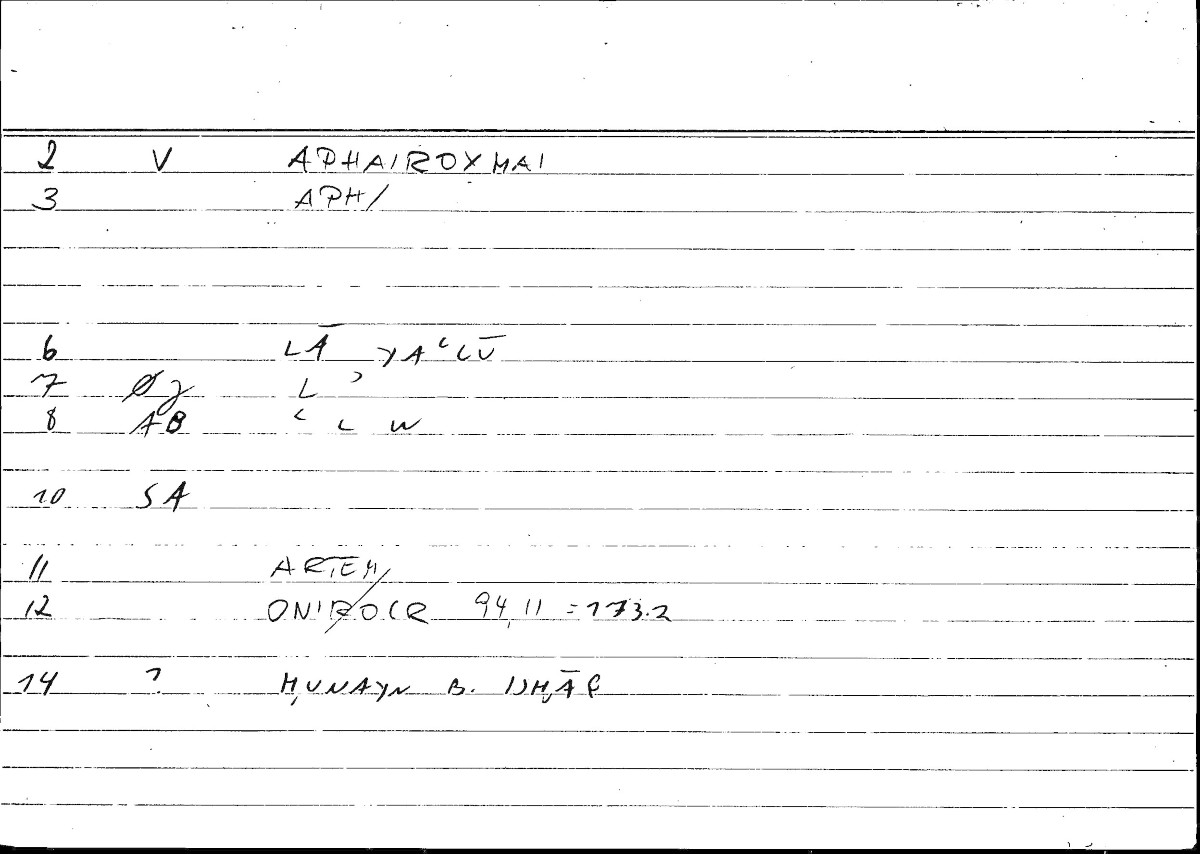 2 V APHAIROYMAI
3 APH/
6 LĀ YAʿLŪ
7 Øy L ʾ
8 AB ʿ L W
10 SA
11 ARTEM
12 ONIROCR 94,11 = 173.2
14 ? ḤUNAYN B. ISḤĀQ